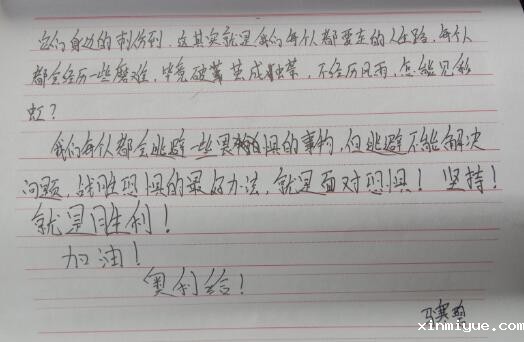 它们身边的荆棘列，这其实就是我们每个人都要走的人生路，每个人
都会经历一些磨难，毕竟破茧茧成蝶，不经历风雨，怎能见彩
虹？
我们每个人都会逃避一些畏惧的事物，但逃避不能解决
问题，战胜恐惧的最好办法，就是面对恐惧！坚持！
就是胜利！
加油！
奥利给！
xinmiyue.com